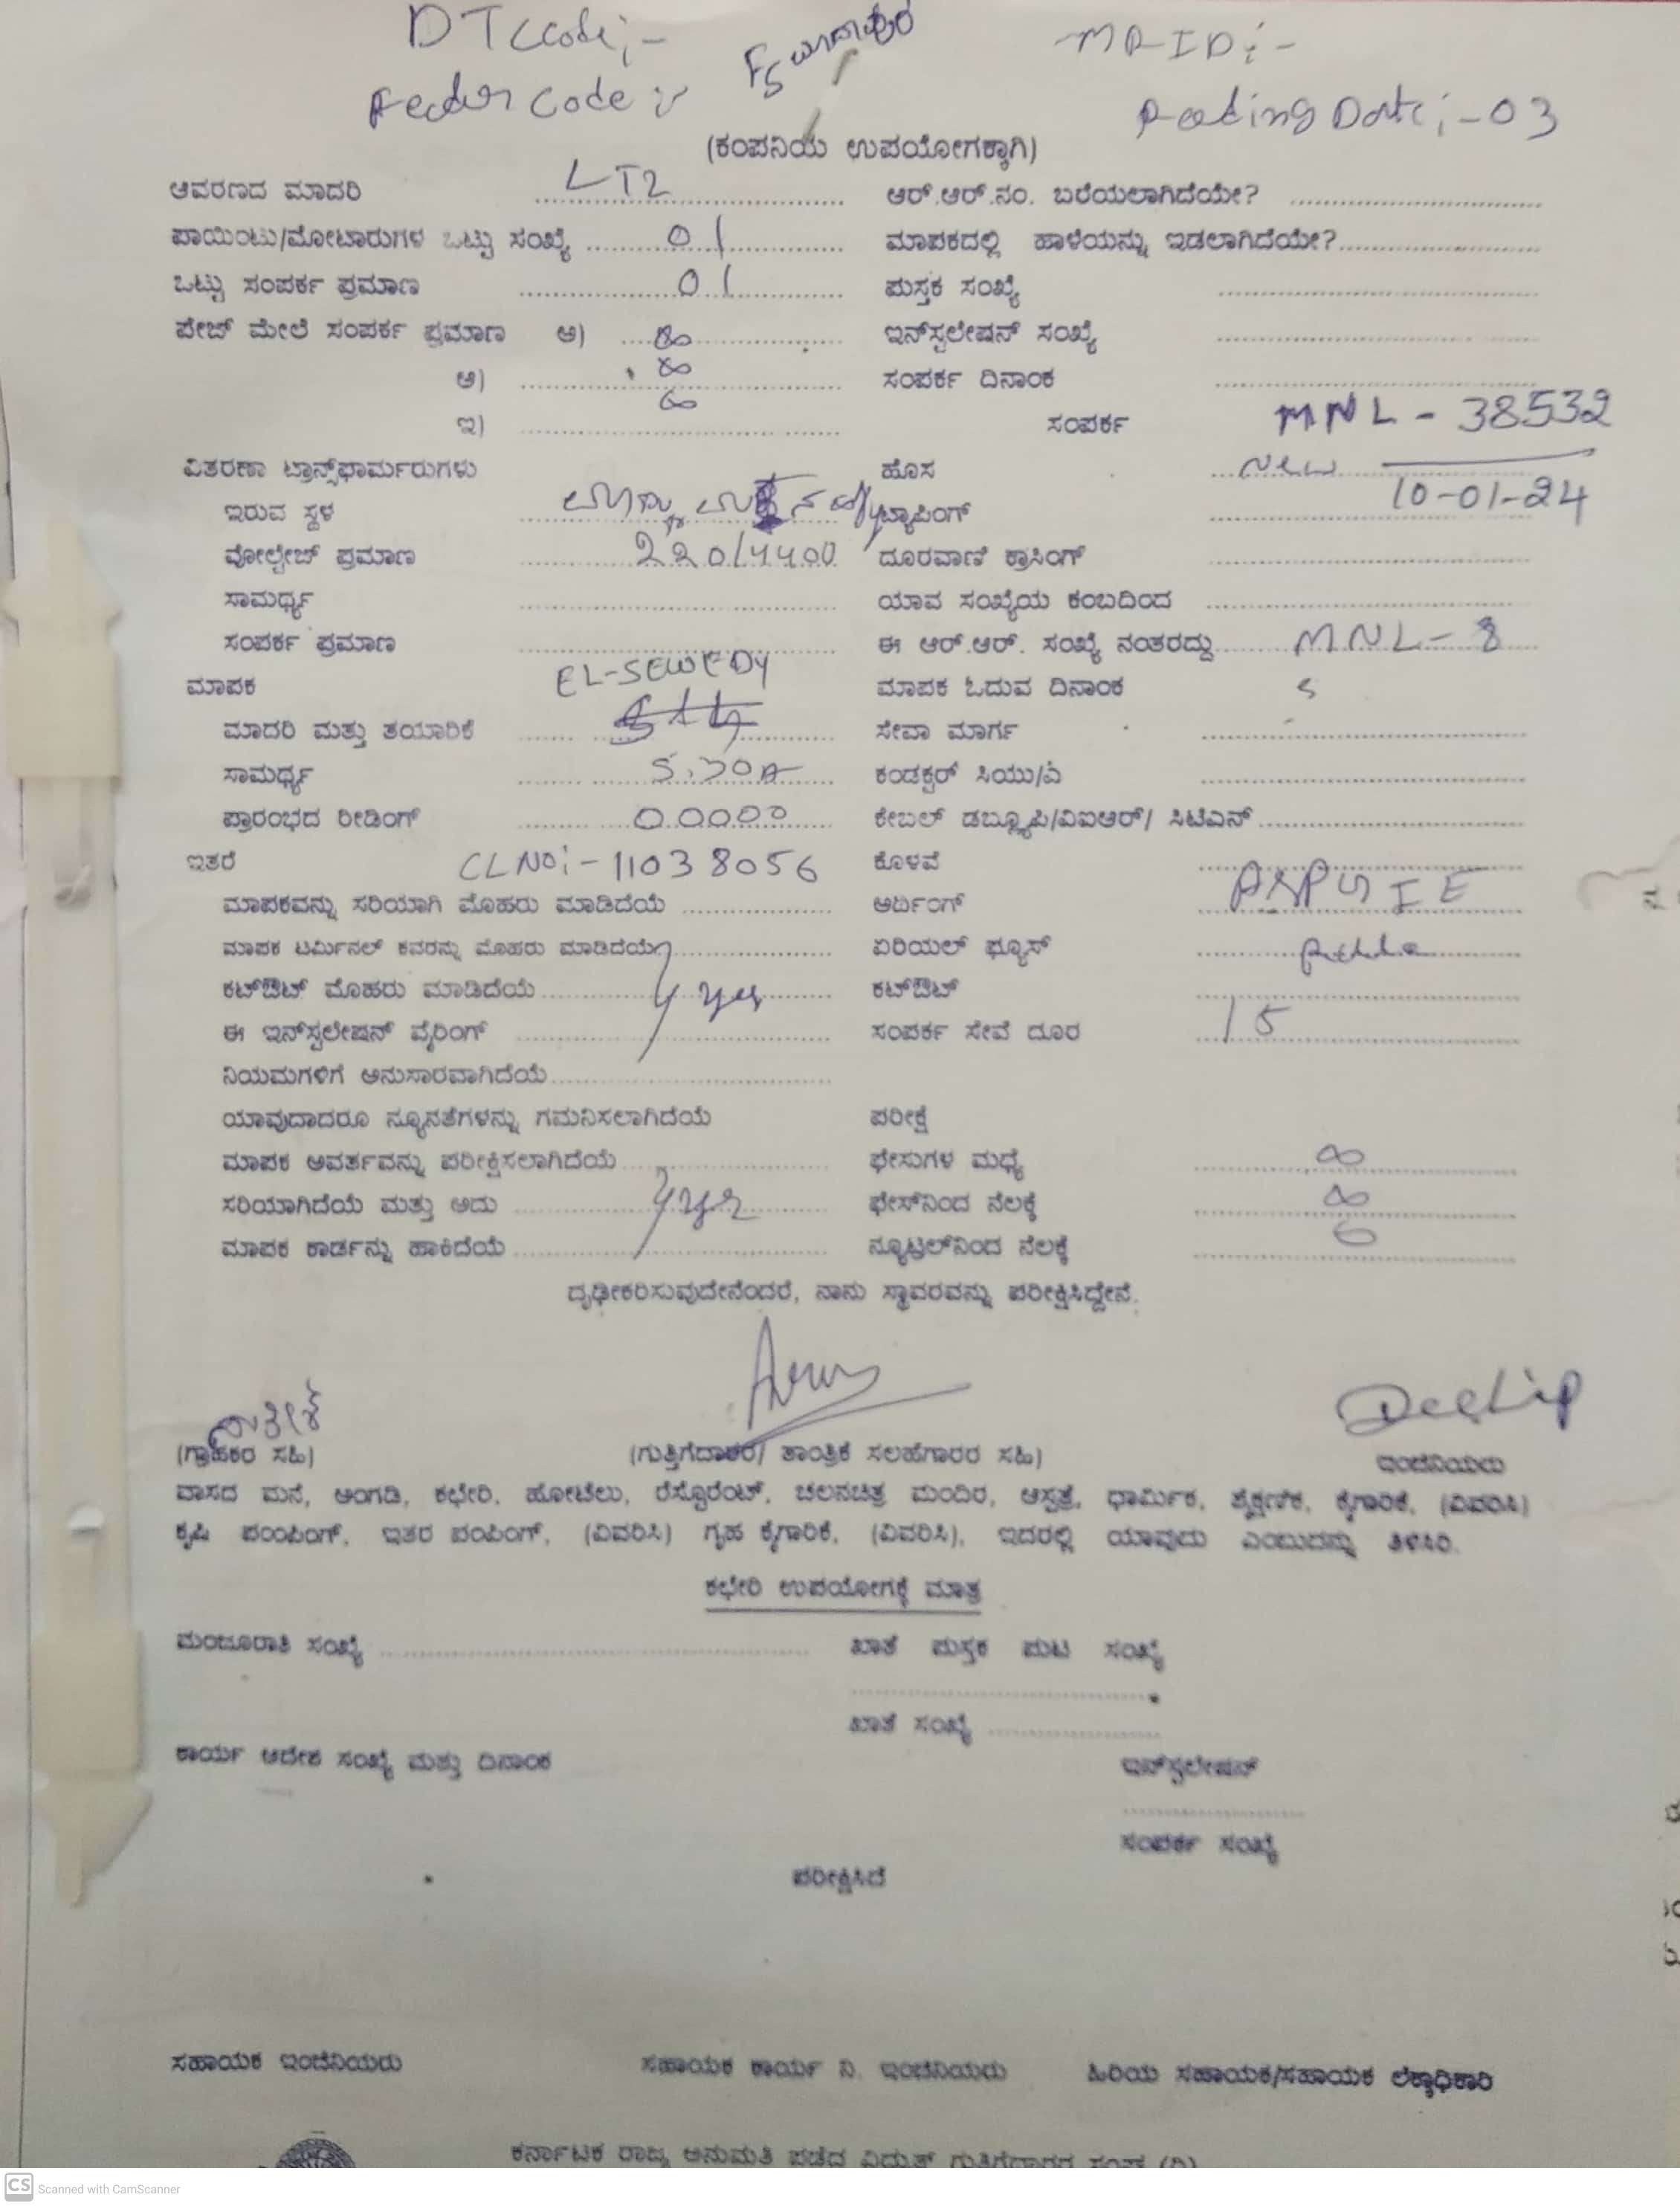 DTCcode;-
MRID;-
F5 ಯಾದಾಪುರ
Feeder Code :-
Reading Date;-03
(ಕಂಪನಿಯ ಉಪಯೋಗಕ್ಕಾಗಿ)
ಆವರಣದ ಮಾದರಿ LT2 ಆರ್.ಆರ್.ನಂ. ಬರೆಯಲಾಗಿದೆಯೇ?
ಪಾಯಿಂಟು/ಮೋಟಾರುಗಳ ಒಟ್ಟು ಸಂಖ್ಯೆ 01 ಮಾಪಕದಲ್ಲಿ ಹಾಳೆಯನ್ನು ಇಡಲಾಗಿದೆಯೇ?
ಒಟ್ಟು ಸಂಪರ್ಕ ಪ್ರಮಾಣ 01 ಪುಸ್ತಕ ಸಂಖ್ಯೆ
ಪೇಜ್ ಮೇಲೆ ಸಂಪರ್ಕ ಪ್ರಮಾಣ ಅ) ∞ ಇನ್‌ಸ್ಟಲೇಷನ್ ಸಂಖ್ಯೆ
ಆ) ∞ ಸಂಪರ್ಕ ದಿನಾಂಕ
ಇ) ∞ ಸಂಪರ್ಕ MNL - 38532
ವಿತರಣಾ ಟ್ರಾನ್ಸ್‌ಫಾರ್ಮರುಗಳು ಹೊಸ New
ಇರುವ ಸ್ಥಳ ಟ್ಯಾಪಿಂಗ್ 10-01-24
ವೋಲ್ಟೇಜ್ ಪ್ರಮಾಣ 220/4400 ದೂರವಾಣಿ ಕ್ರಾಸಿಂಗ್
ಸಾಮರ್ಥ್ಯ ಯಾವ ಸಂಖ್ಯೆಯ ಕಂಬದಿಂದ
ಸಂಪರ್ಕ ಪ್ರಮಾಣ ಈ ಆರ್.ಆರ್. ಸಂಖ್ಯೆ ನಂತರದ್ದು MNL-8
ಮಾಪಕ EL-SEWEDY ಮಾಪಕ ಓದುವ ದಿನಾಂಕ
ಮಾದರಿ ಮತ್ತು ತಯಾರಿಕೆ ಸೇವಾ ಮಾರ್ಗ
ಸಾಮರ್ಥ್ಯ 5.30A ಕಂಡಕ್ಟರ್ ಸಿಯು/ಎ
ಪ್ರಾರಂಭದ ರೀಡಿಂಗ್ 00000 ಕೇಬಲ್ ಡಬ್ಲ್ಯೂಪಿ/ವಿಐಆರ್/ ಸಿಟಿಎನ್
ಇತರೆ CLNO;-11038056 ಕೊಳವೆ
ಮಾಪಕವನ್ನು ಸರಿಯಾಗಿ ಮೊಹರು ಮಾಡಿದೆಯೆ ಅರ್ಥಿಂಗ್
ಮಾಪಕ ಟರ್ಮಿನಲ್ ಕವರನ್ನು ಮೊಹರು ಮಾಡಿದೆಯೆ ಏರಿಯಲ್ ಫ್ಯೂಸ್
ಕಟ್‌ಔಟ್ ಮೊಹರು ಮಾಡಿದೆಯೆ yes ಕಟ್‌ಔಟ್
ಈ ಇನ್‌ಸ್ಟಲೇಷನ್ ವೈರಿಂಗ್ ಸಂಪರ್ಕ ಸೇವೆ ದೂರ 15
ನಿಯಮಗಳಿಗೆ ಅನುಸಾರವಾಗಿದೆಯೆ
ಯಾವುದಾದರೂ ನ್ಯೂನತೆಗಳನ್ನು ಗಮನಿಸಲಾಗಿದೆಯೆ ಪರೀಕ್ಷೆ
ಮಾಪಕ ಅವರ್ತವನ್ನು ಪರೀಕ್ಷಿಸಲಾಗಿದೆಯೆ ಫೇಸುಗಳ ಮಧ್ಯೆ ∞
ಸರಿಯಾಗಿದೆಯೆ ಮತ್ತು ಅದು yes ಫೇಸ್‌ನಿಂದ ನೆಲಕ್ಕೆ ∞
ಮಾಪಕ ಕಾರ್ಡನ್ನು ಹಾಕಿದೆಯೆ ನ್ಯೂಟ್ರಲ್‌ನಿಂದ ನೆಲಕ್ಕೆ
ದೃಢೀಕರಿಸುವುದೇನೆಂದರೆ, ನಾನು ಸ್ಥಾವರವನ್ನು ಪರೀಕ್ಷಿಸಿದ್ದೇನೆ.
(ಗ್ರಾಹಕರ ಸಹಿ) (ಗುತ್ತಿಗೆದಾರರ/ ತಾಂತ್ರಿಕ ಸಲಹೆಗಾರರ ಸಹಿ) ಇಂಜಿನಿಯರು
ವಾಸದ ಮನೆ, ಅಂಗಡಿ, ಕಛೇರಿ, ಹೋಟೆಲು, ರೆಸ್ಟೋರೆಂಟ್, ಚಲನಚಿತ್ರ ಮಂದಿರ, ಆಸ್ಪತ್ರೆ, ಧಾರ್ಮಿಕ, ಶೈಕ್ಷಣಿಕ, ಕೈಗಾರಿಕೆ, (ವಿವರಿಸಿ)
ಕೃಷಿ ಪಂಪಿಂಗ್, ಇತರ ಪಂಪಿಂಗ್, (ವಿವರಿಸಿ) ಗೃಹ ಕೈಗಾರಿಕೆ, (ವಿವರಿಸಿ), ಇದರಲ್ಲಿ ಯಾವುದು ಎಂಬುದನ್ನು ತಿಳಿಸಿರಿ.
ಕಛೇರಿ ಉಪಯೋಗಕ್ಕೆ ಮಾತ್ರ
ಮಂಜೂರಾತಿ ಸಂಖ್ಯೆ ಖಾತೆ ಪುಸ್ತಕ ಪುಟ ಸಂಖ್ಯೆ
ಖಾತೆ ಸಂಖ್ಯೆ
ಕಾರ್ಯ ಆದೇಶ ಸಂಖ್ಯೆ ಮತ್ತು ದಿನಾಂಕ ಇನ್‌ಸ್ಟಲೇಷನ್
ಸಂಪರ್ಕ ಸಂಖ್ಯೆ
ಪರೀಕ್ಷಿಸಿದೆ
ಸಹಾಯಕ ಇಂಜಿನಿಯರು ಸಹಾಯಕ ಕಾರ್ಯ ನಿ. ಇಂಜಿನಿಯರು ಹಿರಿಯ ಸಹಾಯಕ/ಸಹಾಯಕ ಲೆಕ್ಕಾಧಿಕಾರಿ
ಕರ್ನಾಟಕ ರಾಜ್ಯ ಅನುಮತಿ ಪಡೆದ ವಿದ್ಯುತ್ ಗುತ್ತಿಗೆದಾರರ ಸಂಘ (ರಿ)
CS Scanned with CamScanner